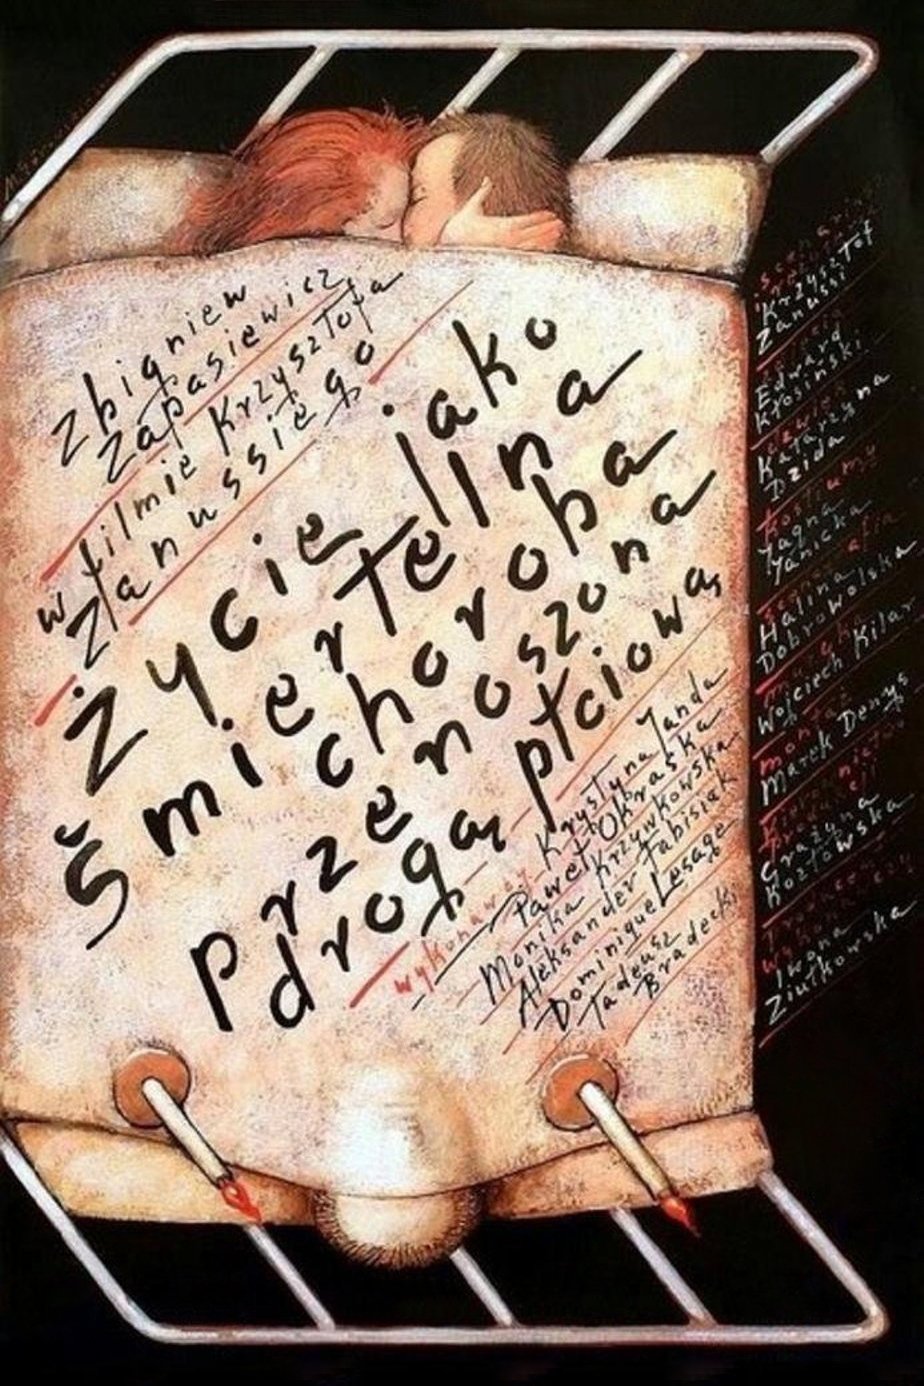 Zbigniew
Zapasiewicz
w filmie Krzysztofa
Zanussiego
Życie jako
Śmiertelna
choroba
przenoszona
drogą płciową
wykonawcy Krystyna Janda
Paweł Okraska
Monika Krzywkowska
Aleksander Fabisiak
Dominique Lesage
Tadeusz
Bradecki
Krzysztof
Zanussi
zdjęcia
Edward
Kłosiński
dźwięk
Katarzyna
Dzida
kostiumy
Jagna
Janicka
Halina
Dobrowolska
muzyka
Wojciech Kilar
montaż
Marek Denys
kierownictwo
produkcji
Grażyna
Kozłowska
Iwona
Ziułkowska